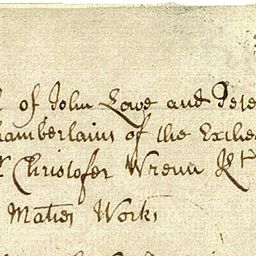 of John Lowe and Pete
hamberlains of the Exche
r Christofer Wrenn Kt
Maties Works